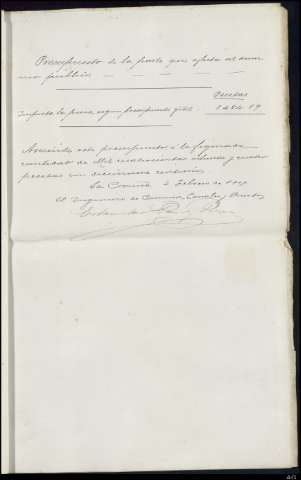 Presupuesto de la parte que afecta al alum
Pesetas
Importa la suma según presupuesto gral. 1484 19
Asciende este presupuesto a la figurada
cantidad de Mil cuatrocientas ochenta y cuatro
pesetas con diecinueve centimos
La Coruña 2 Febrero de
El Ingeniero de Caminos, Canales y Puertos